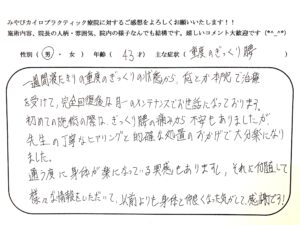 みやびカイロプラクティック療院に対するご感想をよろしくお願いいたします!!
施術内容、院長の人柄・雰囲気、院内の様子なんでも結構です。嬉しいコメント大歓迎です (*^_^*)
性別 ( 男 ・ 女 ) 年齢 ( 43才 ) 主な症状 ( 重度のぎっくり腰 )
一週間寝たきりの重度のぎっくりの状態から、何とか本院で治療
を受けて、完全回復後は月一のメンテナンスでお世話になっております。
初めての施術の際は、ぎっくり腰の痛みから不安もありましたが
先生の丁寧なヒアリングと的確な処置のおかげで大分楽になり
ました。
通う度に身体が楽になっている実感もありますし、それに付随して
様々な情報をいただいて、以前よりも身体と仲良くなった気がして、感謝です!